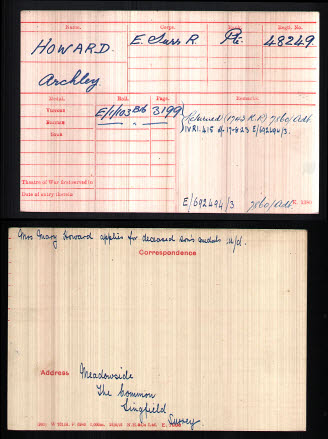 Name. Corps. Rank. Regtl. No.
HOWARD. E. Surr R. Pte. 48249
Archley.
Medal. Roll. Page. Remarks.
Victory E/1/103 B16 3199
British — „ —
Star
(1743 K.R.) 7180/Adt
IVRI. 415 of 17-8-23 E/692494/3.
Theatre of War first served in
Date of entry therein
E/692494/3 7180/Adt K. 1380
Mrs Mary Howard applies for deceased son's medals u/d.
Correspondence
Address Meadowside
The Common
Lingfield
Surrey.